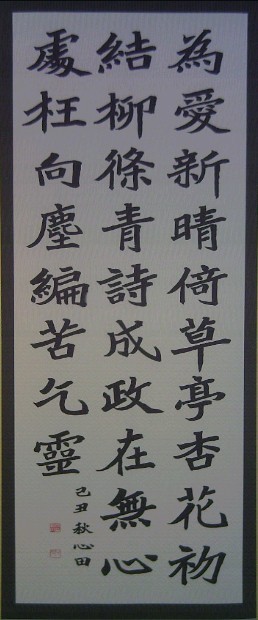 為愛新晴倚草亭杏花初
結柳條青詩成政在無心
處枉向塵編苦乞靈
己丑秋心田